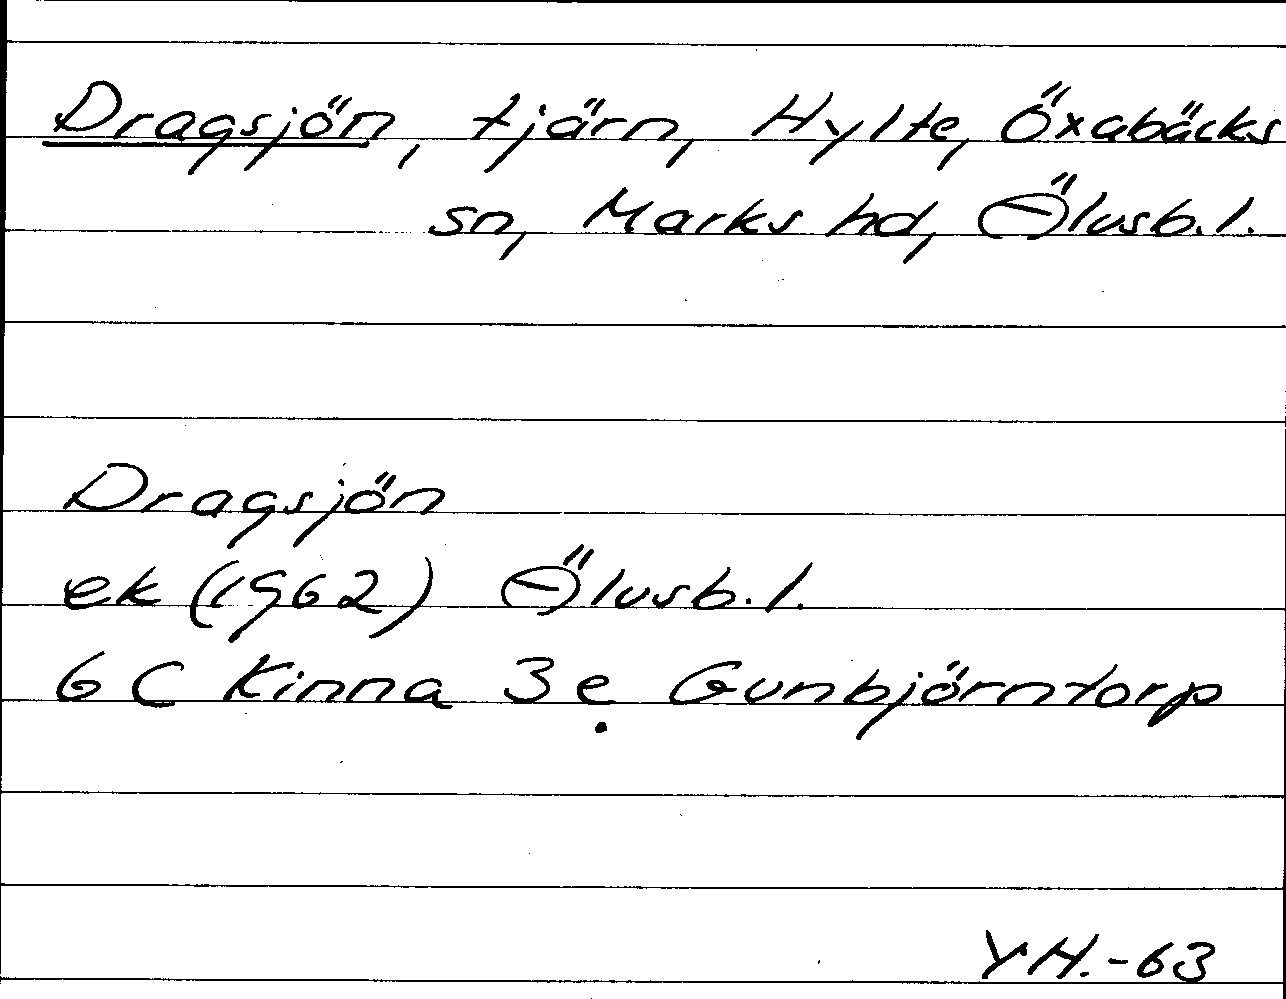 Dragsjön, tjärn, Hylte, Öxabäcks
sn, Marks hd, Älvsb. l.
Dragsjön
ek (1962) Älvsb. l.
6 C Kinna 3 e Gunbjörntorp
YH.-63